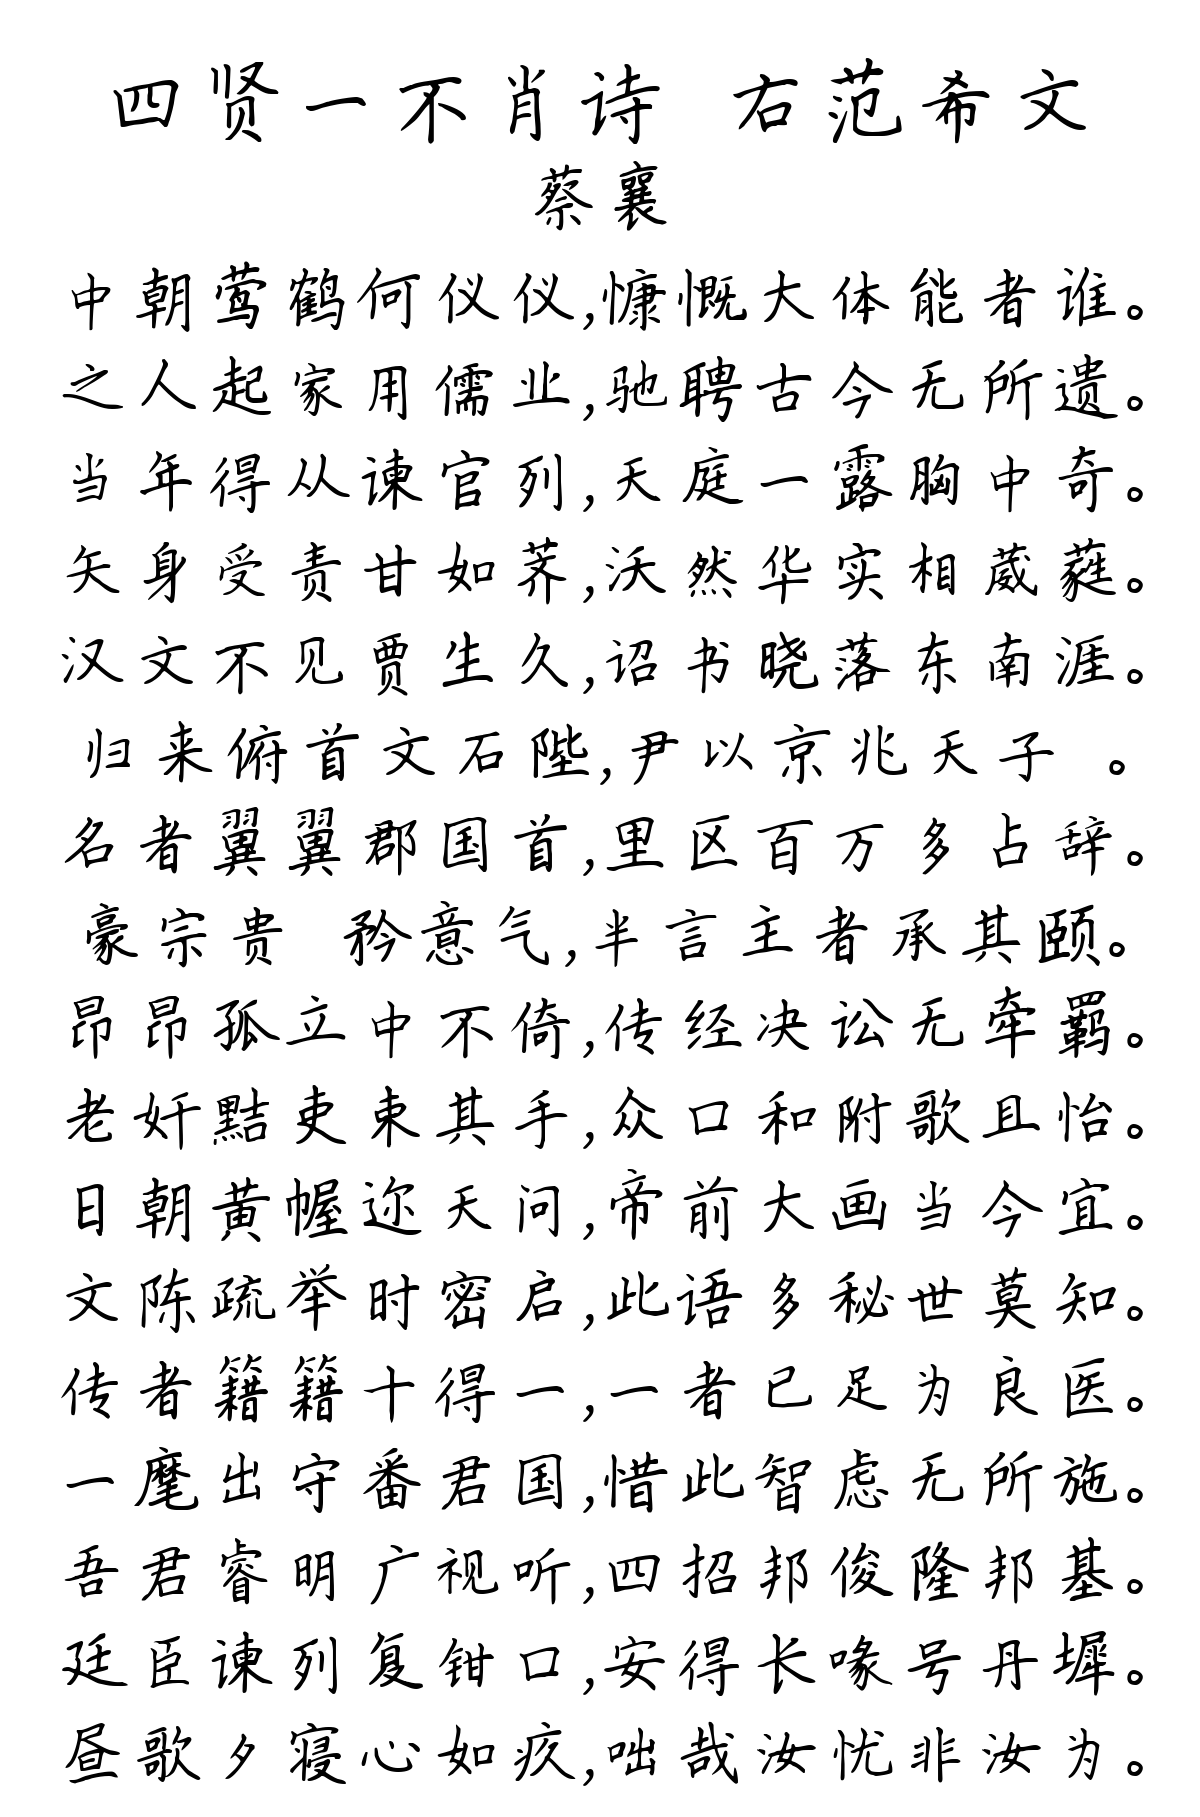 四贤一不肖诗 右范希文
蔡襄
中朝莺鹤何仪仪,慷慨大体能者谁。
之人起家用儒业,驰聘古今无所遗。
当年得从谏官列,天庭一露胸中奇。
矢身受责甘如荠,沃然华实相葳蕤。
汉文不见贾生久,诏书晓落东南涯。
归来俯首文石陛,尹以京兆天子 。
名者翼翼郡国首,里区百万多占辞。
豪宗贵 矜意气,半言主者承其颐。
昂昂孤立中不倚,传经决讼无牵羁。
老奸黠吏束其手,众口和附歌且怡。
日朝黄幄迩天问,帝前大画当今宜。
文陈疏举时密启,此语多秘世莫知。
传者籍籍十得一,一者已足为良医。
一麾出守番君国,惜此智虑无所施。
吾君睿明广视听,四招邦俊隆邦基。
廷臣谏列复钳口,安得长喙号丹墀。
昼歌夕寝心如疚,咄哉汝忧非汝为。